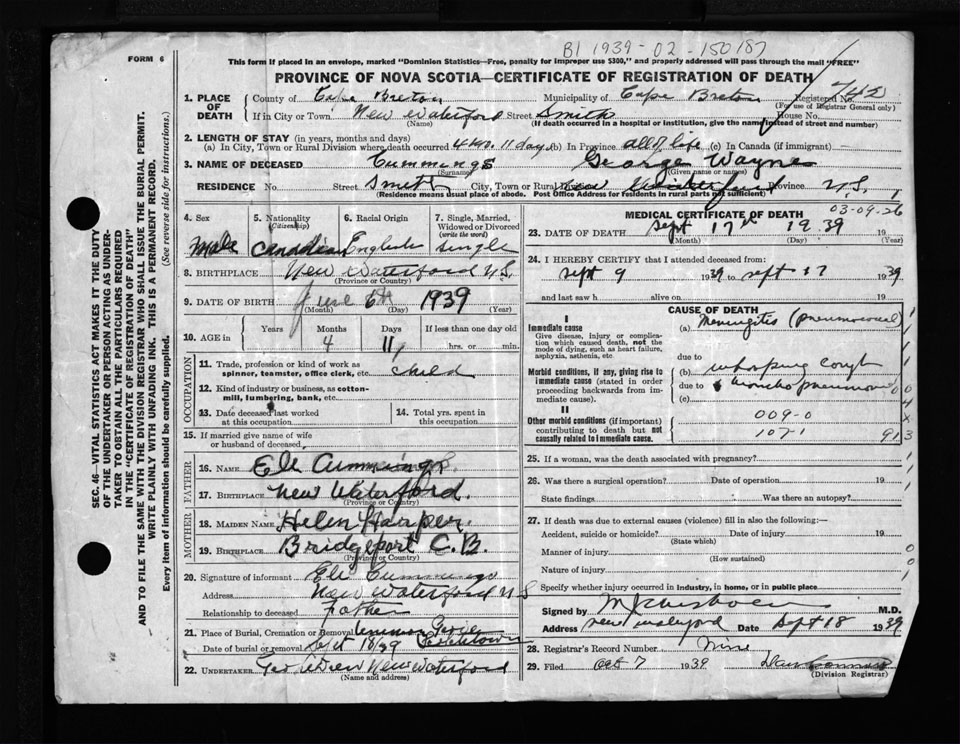 BI 1939-02-150187
FORM 6
This form if placed in an envelope, marked "Dominion Statistics—Free, penalty for improper use $300," and properly addressed will pass through the mail "FREE"
PROVINCE OF NOVA SCOTIA—CERTIFICATE OF REGISTRATION OF DEATH
SEC. 46—VITAL STATISTICS ACT MAKES IT THE DUTY
OF THE UNDERTAKER OR PERSON ACTING AS UNDER-
TAKER TO OBTAIN ALL THE PARTICULARS REQUIRED
IN THE "CERTIFICATE OF REGISTRATION OF DEATH"
AND TO FILE THE SAME WITH THE DIVISION REGISTRAR WHO SHALL ISSUE THE BURIAL PERMIT.
WRITE PLAINLY WITH UNFADING INK. THIS IS A PERMANENT RECORD.
Every item of information should be carefully supplied. (See reverse side for instructions.)
1. PLACE OF DEATH County of Cape Breton Municipality of Cape Breton Registered No. 742
(For use of Registrar General only)
If in City or Town New Waterford Street Smith House No.
(Name) (If death occurred in a hospital or institution, give the name instead of street and number)
2. LENGTH OF STAY (in years, months and days)
(a) In City, Town or Rural Division where death occurred 4 mo. 11 days (b) In Province all of life (c) In Canada (if immigrant)
3. NAME OF DECEASED Cummings George Wayne
(Surname) (Given name or names)
RESIDENCE No. Street Smith City, Town or Rural New Waterford Province N.S.
(Residence means usual place of abode. Post Office Address for residents in rural parts not sufficient)
4. Sex 5. Nationality (Citizenship) 6. Racial Origin 7. Single, Married, Widowed or Divorced (write the word)
Male Canadian English single
8. BIRTHPLACE New Waterford N.S.
(Province or Country)
9. DATE OF BIRTH June 6th 1939
(Month) (Day) (Year)
10. AGE in Years Months Days If less than one day old
4 11 hrs. or min.
OCCUPATION
11. Trade, profession or kind of work as spinner, teamster, office clerk, etc. child
12. Kind of industry or business, as cotton-mill, lumbering, bank, etc.
13. Date deceased last worked at this occupation 14. Total yrs. spent in this occupation
15. If married give name of wife or husband of deceased
FATHER
16. NAME Eli Cummings
17. BIRTHPLACE New Waterford.
(Province or Country)
MOTHER
18. MAIDEN NAME Helen Harper.
19. BIRTHPLACE Bridgeport C.B.
(Province or Country)
20. Signature of informant Eli Cummings
Address New Waterford N S
Relationship to deceased Father
21. Place of Burial, Cremation or Removal
Date of burial or removal Sept 18/39
22. UNDERTAKER New Waterford
(Name and address)
MEDICAL CERTIFICATE OF DEATH 03-09-26
23. DATE OF DEATH Sept 17th 1939
(Month) (Day) (Year)
24. I HEREBY CERTIFY that I attended deceased from:
Sept 9 1939 to Sept 17 1939
and last saw h alive on 19
CAUSE OF DEATH
I
Immediate cause (a) Meningitis (pneumococcal)
Give disease, injury or complication which caused death, not the mode of dying, such as heart failure, asphyxia, asthenia, etc.
due to
(b) whooping cough
Morbid conditions, if any, giving rise to immediate cause (stated in order proceeding backwards from immediate cause).
due to broncho pneumonia
(c)
II
Other morbid conditions (if important) contributing to death but not causally related to immediate cause.
009-0
107-1
25. If a woman, was the death associated with pregnancy?
26. Was there a surgical operation? Date of operation 19
State findings Was there an autopsy?
27. If death was due to external causes (violence) fill in also the following:—
Accident, suicide or homicide? Date of injury 19
(State which)
Manner of injury
(How sustained)
Nature of injury
Specify whether injury occurred in industry, in home, or in public place
Signed by M.D.
Address New Waterford Date Sept 18 1939
28. Registrar's Record Number Nine
29. Filed Oct 7 1939 Dan
(Division Registrar)